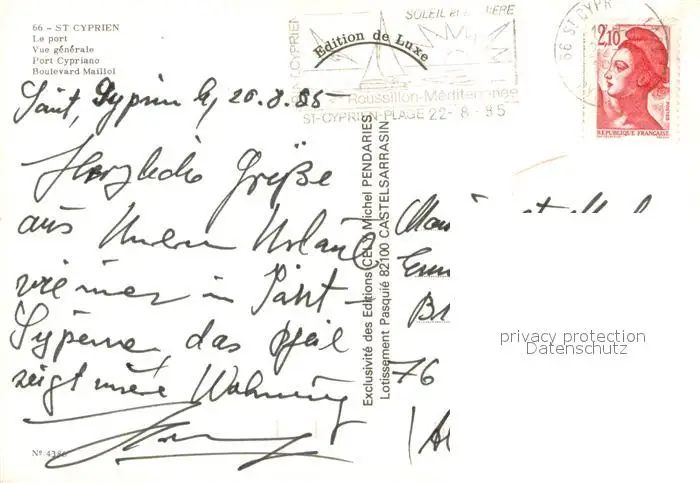 66 - ST CYPRIEN
Le port
Vue générale
Port Cypriano
Boulevard Maillol
SOLEIL et
Edition de Luxe
Roussillon-Méditerranée
ST-CYPRIEN-PLAGE 22-8-85
66 ST CYPR
2,10
REPUBLIQUE FRANÇAISE
Saint, Syprien 20.8.85
Herzliche Grüße
aus Urlaub
wie immer in Saint-
Syprien, das Pfeil
zeigt unsere Wohnung
Nº 4386
Exclusivité des Editions CELY Michel PENDARIES
Lotissement Pasquié 82100 CASTELSARRASIN
76
privacy protection
Datenschutz